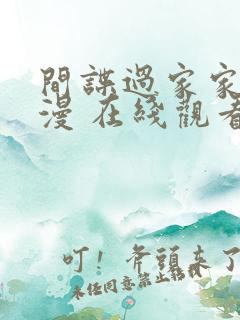 間諜過家家
漫 在綫觀看
叮！斧頭來了
未经同意禁止转载